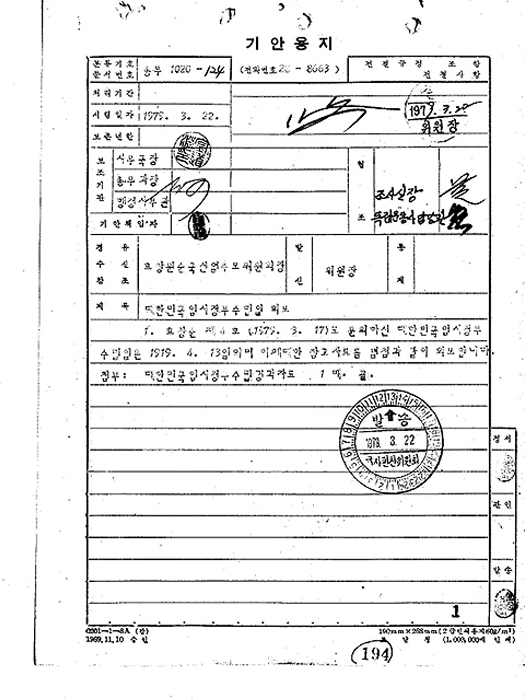 기안용지
분류기호
문서번호
총무 1020-124
(전화번호 20-8663)
전결규정 조 항
전결사항
처리기간
시행일자
1979. 3. 22.
보존년한
1979. 3. 22
위원장
보조기관
사무국장
총무과장
행정사무관
협조
조사실장
기안책임자
경유
수신
참조
위원장
발신
통제
제목
대한민국임시정부수립일 회보
1. 효창순 제4호 (1979. 3. 17)로 문의하신 대한민국임시정부
수립일은 1919. 4. 13일이며 이에대한 참고자료를 별첨과 같이 회보합니다.
첨부: 대한민국임시정부수립경과자료 1매. 끝.
발송
1979. 3. 22
국사편찬위원회
정서
관인
발송
1
0201-1-8A (갑)
1969.11.10 승인
190mm×268mm (2급인쇄용지60g/m²)
조 달 청 (1,000,000매 인쇄)
194